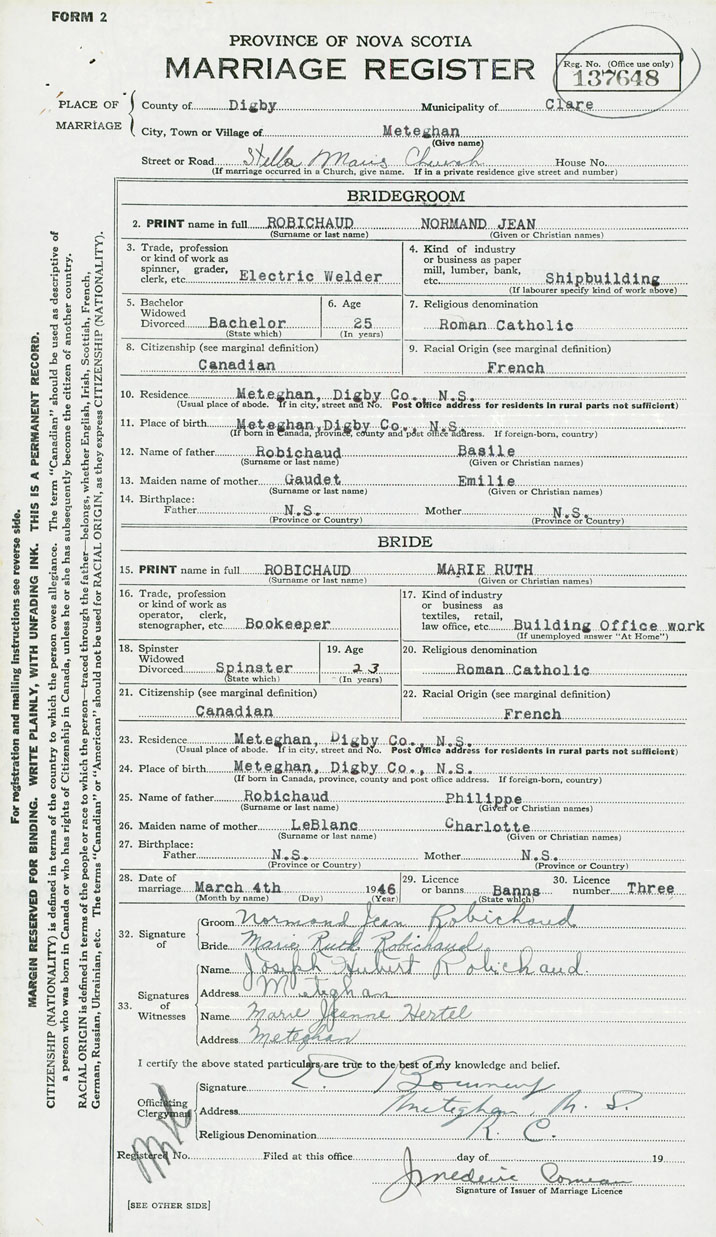 FORM 2
PROVINCE OF NOVA SCOTIA
MARRIAGE REGISTER
Reg. No. (Office use only)
137648
PLACE OF MARRIAGE
County of Digby Municipality of Clare
City, Town or Village of Meteghan
(Give name)
Street or Road Stella Maris Church House No.
(If marriage occurred in a Church, give name. If in a private residence give street and number)
BRIDEGROOM
2. PRINT name in full ROBICHAUD NORMAND JEAN
(Surname or last name) (Given or Christian names)
3. Trade, profession
or kind of work as
spinner, grader,
clerk, etc. Electric Welder
4. Kind of industry
or business as paper
mill, lumber, bank,
etc. Shipbuilding
(If labourer specify kind of work above)
5. Bachelor
Widowed
Divorced Bachelor
(State which)
6. Age
25
(In years)
7. Religious denomination
Roman Catholic
8. Citizenship (see marginal definition)
Canadian
9. Racial Origin (see marginal definition)
French
10. Residence Meteghan, Digby Co., N.S.
(Usual place of abode. If in city, street and No. Post Office address for residents in rural parts not sufficient)
11. Place of birth Meteghan,Digby Co., N.S.
(If born in Canada, province, county and post office address. If foreign-born, country)
12. Name of father Robichaud Basile
(Surname or last name) (Given or Christian names)
13. Maiden name of mother Gaudet Emilie
(Surname or last name) (Given or Christian names)
14. Birthplace:
Father N.S. Mother N.S.
(Province or Country) (Province or Country)
BRIDE
15. PRINT name in full ROBICHAUD MARIE RUTH
(Surname or last name) (Given or Christian names)
16. Trade, profession
or kind of work as
operator, clerk,
stenographer, etc. Bookeeper
17. Kind of industry
or business as
textiles, retail,
law office, etc. Building Office work
(If unemployed answer "At Home")
18. Spinster
Widowed
Divorced Spinster
(State which)
19. Age
23
(In years)
20. Religious denomination
Roman Catholic
21. Citizenship (see marginal definition)
Canadian
22. Racial Origin (see marginal definition)
French
23. Residence Meteghan, Digby Co., N.S.
(Usual place of abode. If in city, street and No. Post Office address for residents in rural parts not sufficient)
24. Place of birth Meteghan, Digby Co., N.S.
(If born in Canada, province, county and post office address. If foreign-born, country)
25. Name of father Robichaud Philippe
(Surname or last name) (Given or Christian names)
26. Maiden name of mother LeBlanc Charlotte
(Surname or last name) (Given or Christian names)
27. Birthplace:
Father N.S. Mother N.S.
(Province or Country) (Province or Country)
28. Date of
marriage March 4th 1946
(Month by name) (Day) (Year)
29. Licence
or banns Banns
(State which)
30. Licence
number Three
32. Signature of
Groom Normand Jean Robichaud
Bride Marie Ruth Robichaud
33. Signatures of Witnesses
Name Joseph Hubert Robichaud
Address Meteghan
Name Marie Jeanne Hertel
Address Meteghan
I certify the above stated particulars are true to the best of my knowledge and belief.
Officiating Clergyman
Signature
Address Meteghan, N. S.
Religious Denomination R. C.
Registered No. Filed at this office day of 19
Comeau
Signature of Issuer of Marriage Licence
[SEE OTHER SIDE]
For registration and mailing instructions see reverse side.
MARGIN RESERVED FOR BINDING. WRITE PLAINLY, WITH UNFADING INK. THIS IS A PERMANENT RECORD.
CITIZENSHIP (NATIONALITY) is defined in terms of the country to which the person owes allegiance. The term "Canadian" should be used as descriptive of
a person who was born in Canada or who has rights of Citizenship in Canada, unless he or she has subsequently become the citizen of another country.
RACIAL ORIGIN is defined in terms of the people or race to which the person—traced through the father—belongs, whether English, Irish, Scottish, French,
German, Russian, Ukrainian, etc. The terms "Canadian" or "American" should not be used for RACIAL ORIGIN, as they express CITIZENSHIP (NATIONALITY).